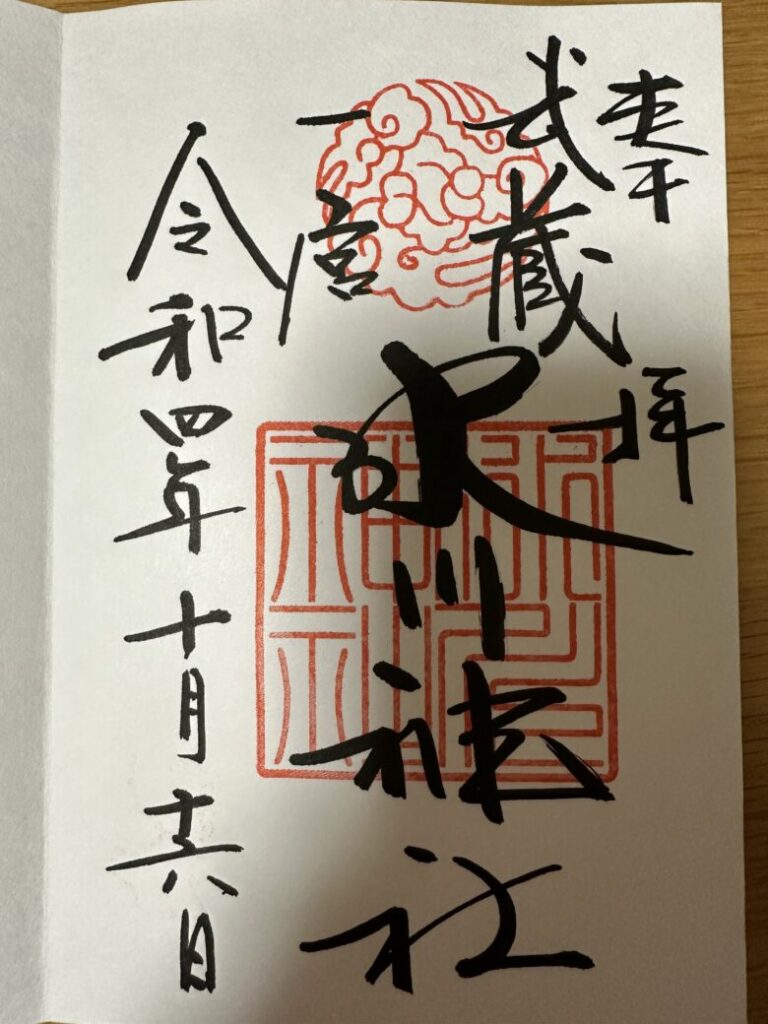 奉拝
武蔵
一宮
氷川神社
令和四年十月十六日
氷川神社